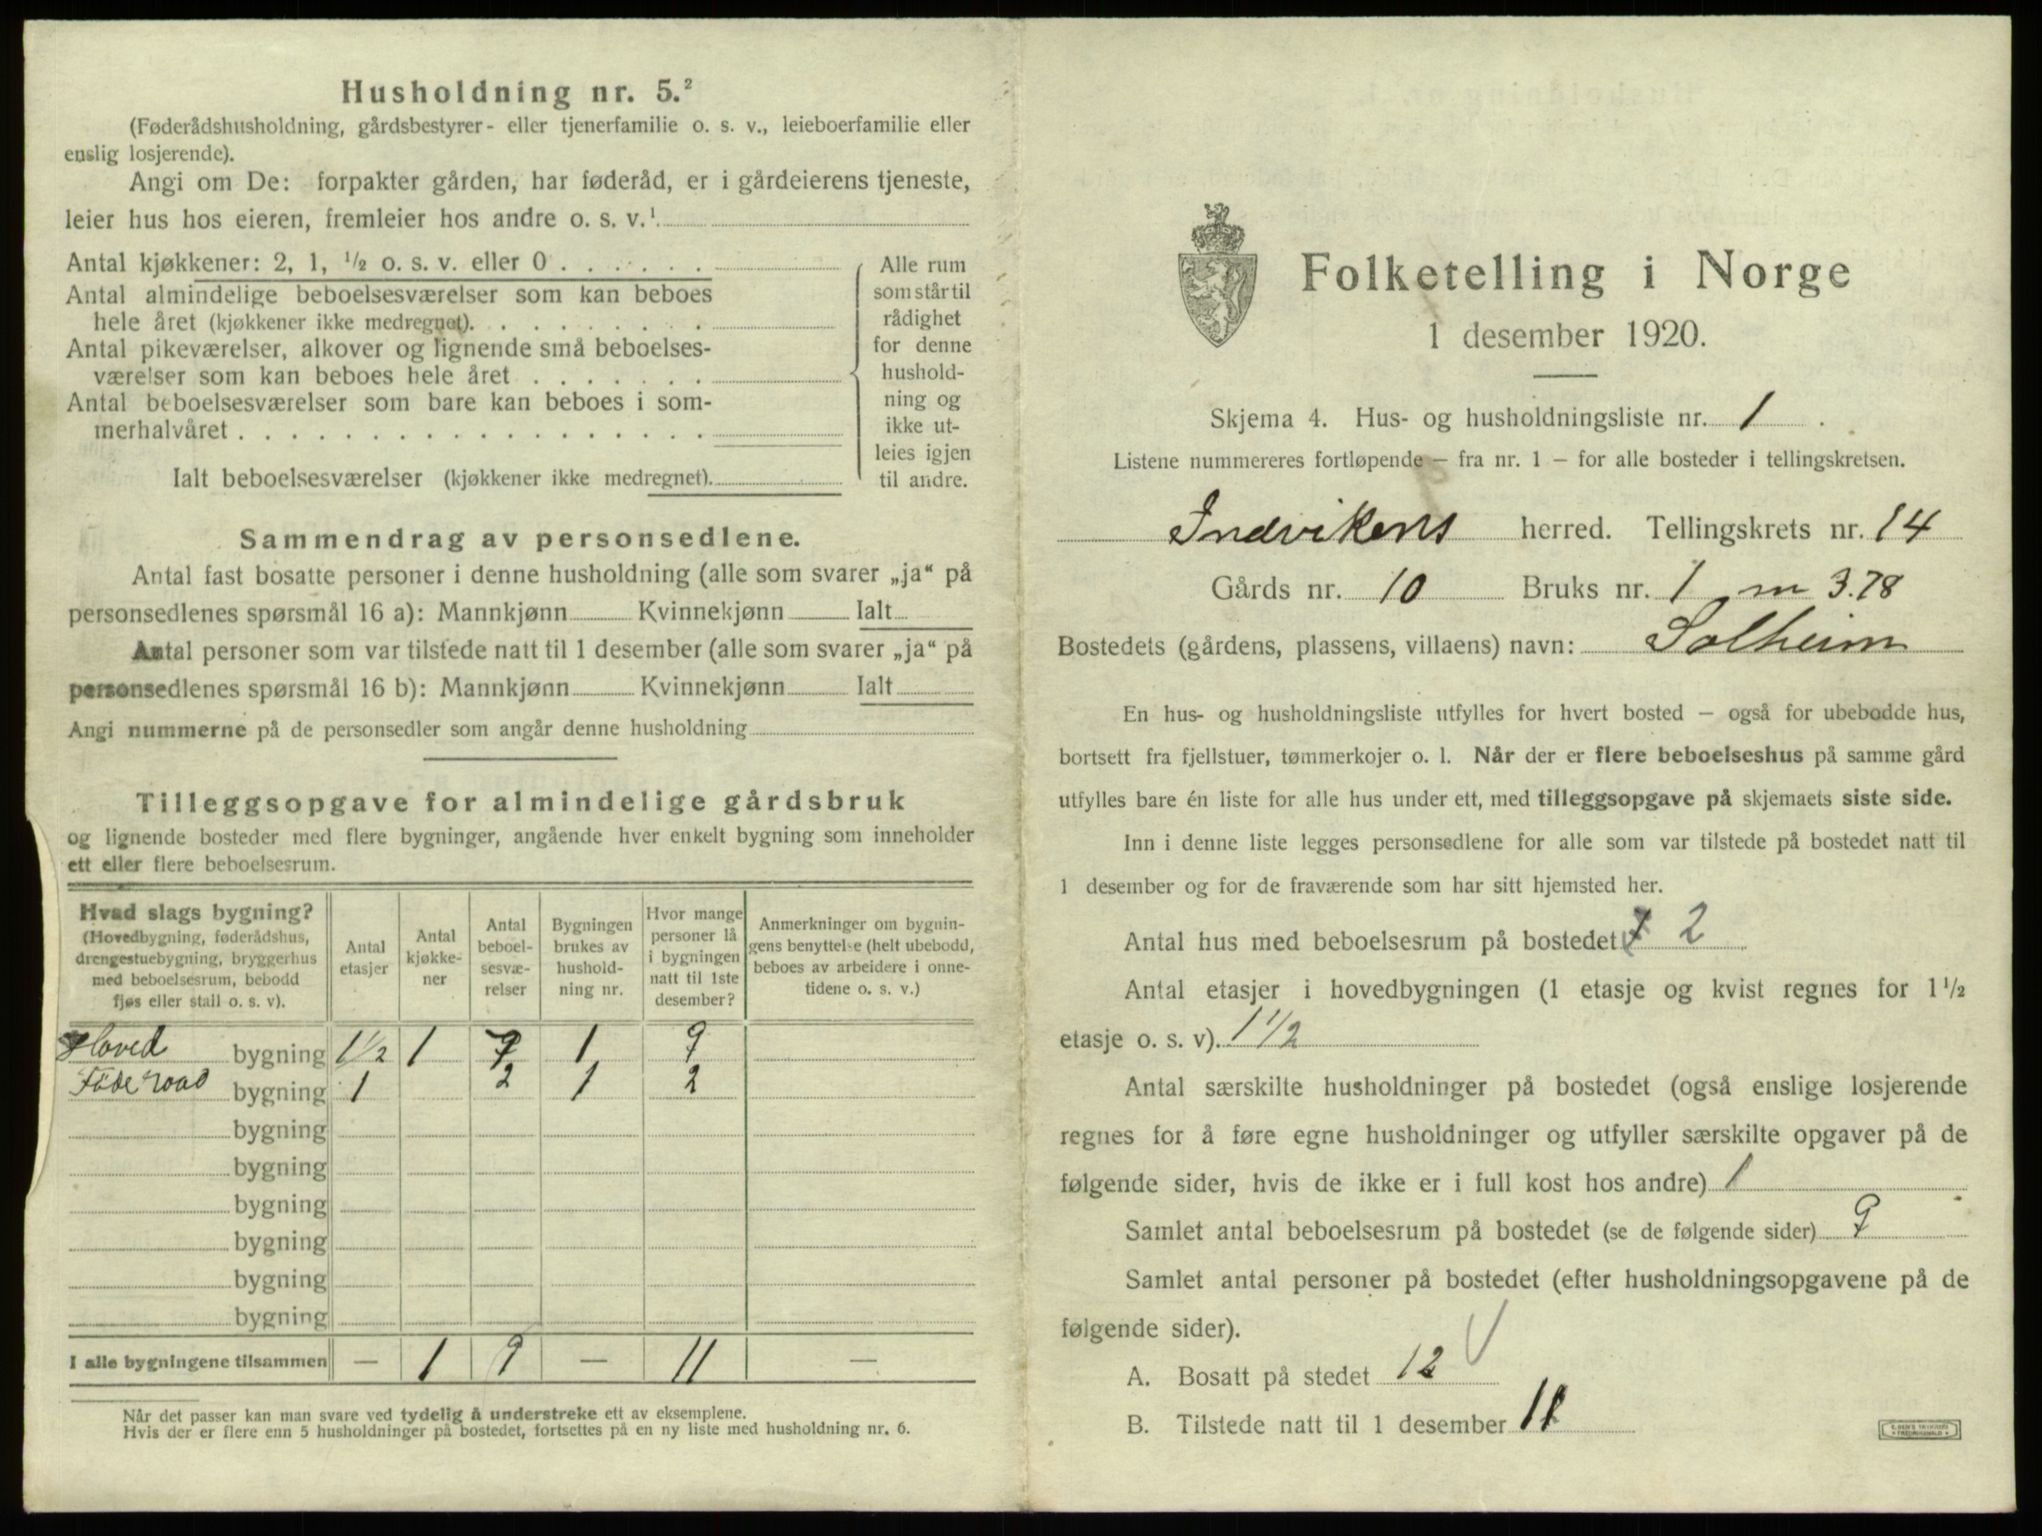 Husholdning nr. 5.²
(Føderådshusholdning, gårdsbestyrer- eller tjenerfamilie o. s. v., leieboerfamilie eller
enslig losjerende).
Angi om De: forpakter gården, har føderåd, er i gårdeierens tjeneste,
leier hus hos eieren, fremleier hos andre o. s. v.¹
Antal kjøkkener: 2, 1, ½ o. s. v. eller 0 . . . . . .
Antal almindelige beboelsesværelser som kan beboes
hele året (kjøkkener ikke medregnet). . . . . . . .
Antal pikeværelser, alkover og lignende små beboelses-
værelser som kan beboes hele året . . . . . . .
Antal beboelsesværelser som bare kan beboes i som-
merhalvåret . . . . . . . . . . . . . . . . . .
Ialt beboelsesværelser (kjøkkener ikke medregnet).
Alle rum
som står til
rådighet
for denne
hushold-
ning og
ikke ut-
leies igjen
til andre.
Sammendrag av personsedlene.
Antal fast bosatte personer i denne husholdning (alle som svarer „ja“ på
personsedlenes spørsmål 16 a): Mannkjønn Kvinnekjønn Ialt
Antal personer som var tilstede natt til 1 desember (alle som svarer „ja“ på
personsedlenes spørsmål 16 b): Mannkjønn Kvinnekjønn Ialt
Angi nummerne på de personsedler som angår denne husholdning
Tilleggsopgave for almindelige gårdsbruk
og lignende bosteder med flere bygninger, angående hver enkelt bygning som inneholder
ett eller flere beboelsesrum.
Hvad slags bygning?
(Hovedbygning, føderådshus,
drengestuebygning, bryggerhus
med beboelsesrum, bebodd
fjøs eller stall o. s. v).
Antal
etasjer
Antal
kjøkke-
ner
Antal
beboel-
sesvæ-
relser
Bygningen
brukes av
hushold-
ning nr.
Hvor mange
personer lå
i bygningen
natt til 1ste
desember?
Anmerkninger om bygnin-
gens benyttelse (helt ubebodd,
beboes av arbeidere i onne-
tidene o. s. v.)
Hoved bygning 1½ 1 7 1 9
Föderaad bygning 1 2 1 2
bygning
bygning
bygning
bygning
bygning
bygning
I alle bygningene tilsammen — 1 9 — 11 —
Når det passer kan man svare ved tydelig å understreke ett av eksemplene.
Hvis der er flere enn 5 husholdninger på bostedet, fortsettes på en ny liste med husholdning nr. 6.
Folketelling i Norge
1 desember 1920.
Skjema 4. Hus- og husholdningsliste nr. 1.
Listene nummereres fortløpende — fra nr. 1 — for alle bosteder i tellingskretsen.
Indvikens herred. Tellingskrets nr. 14
Gårds nr. 10 Bruks nr. 1 m 3.78
Bostedets (gårdens, plassens, villaens) navn: Solheim
En hus- og husholdningsliste utfylles for hvert bosted — også for ubebodde hus,
bortsett fra fjellstuer, tømmerkojer o. l. Når der er flere beboelseshus på samme gård
utfylles bare én liste for alle hus under ett, med tilleggsopgave på skjemaets siste side.
Inn i denne liste legges personsedlene for alle som var tilstede på bostedet natt til
1 desember og for de fraværende som har sitt hjemsted her.
Antal hus med beboelsesrum på bostedet 2
Antal etasjer i hovedbygningen (1 etasje og kvist regnes for 1½
etasje o. s. v). 1½
Antal særskilte husholdninger på bostedet (også enslige losjerende
regnes for å føre egne husholdninger og utfyller særskilte opgaver på de
følgende sider, hvis de ikke er i full kost hos andre) 1
Samlet antal beboelsesrum på bostedet (se de følgende sider) 9
Samlet antal personer på bostedet (efter husholdningsopgavene på de
følgende sider).
A. Bosatt på stedet 12
B. Tilstede natt til 1 desember 11